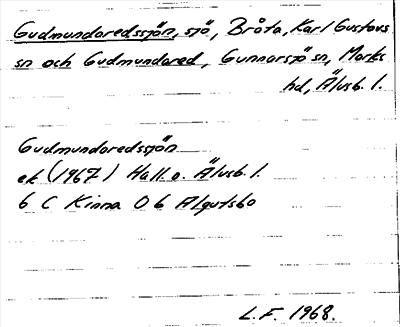 Gudmundaredssjön, sjö, Bråta, Karl Gustavs
sn och Gudmundared, Gunnarsjö sn, Marks
hd, Älvsb. l.
Gudmundaredssjön
ek (1967) Hall. o. Älvsb. l.
6 C Kinna 0 b Algutsbo
L.F. 1968.